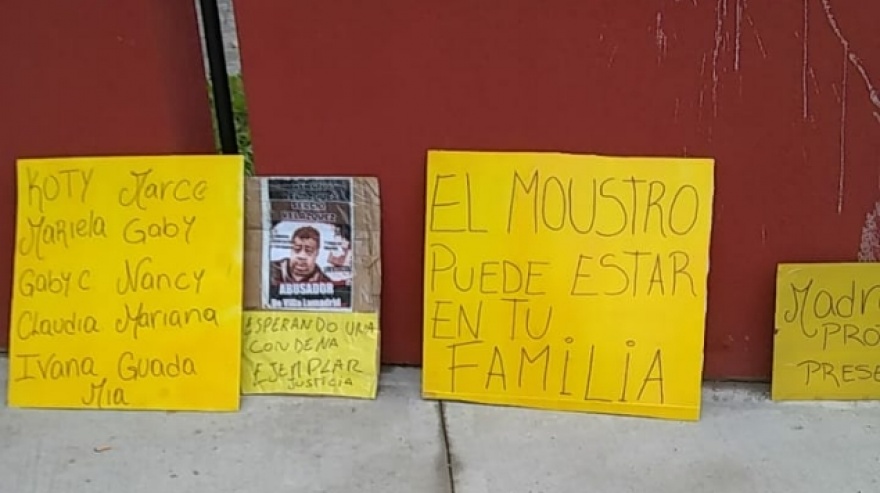 KOTY Marce
Mariela Gaby
Gaby C Nancy
Claudia Mariana
Ivana Guada
Mia
SERGIO
VELAZQUEZ
ABUSADOR
De Villa Lamadrid
ESPERANDO UNA
CONDENA
EJEMPLAR
JUSTICIA
EL MOUSTRO
PUEDE ESTAR
EN TU
FAMILIA
Madr
PRO
PRESE